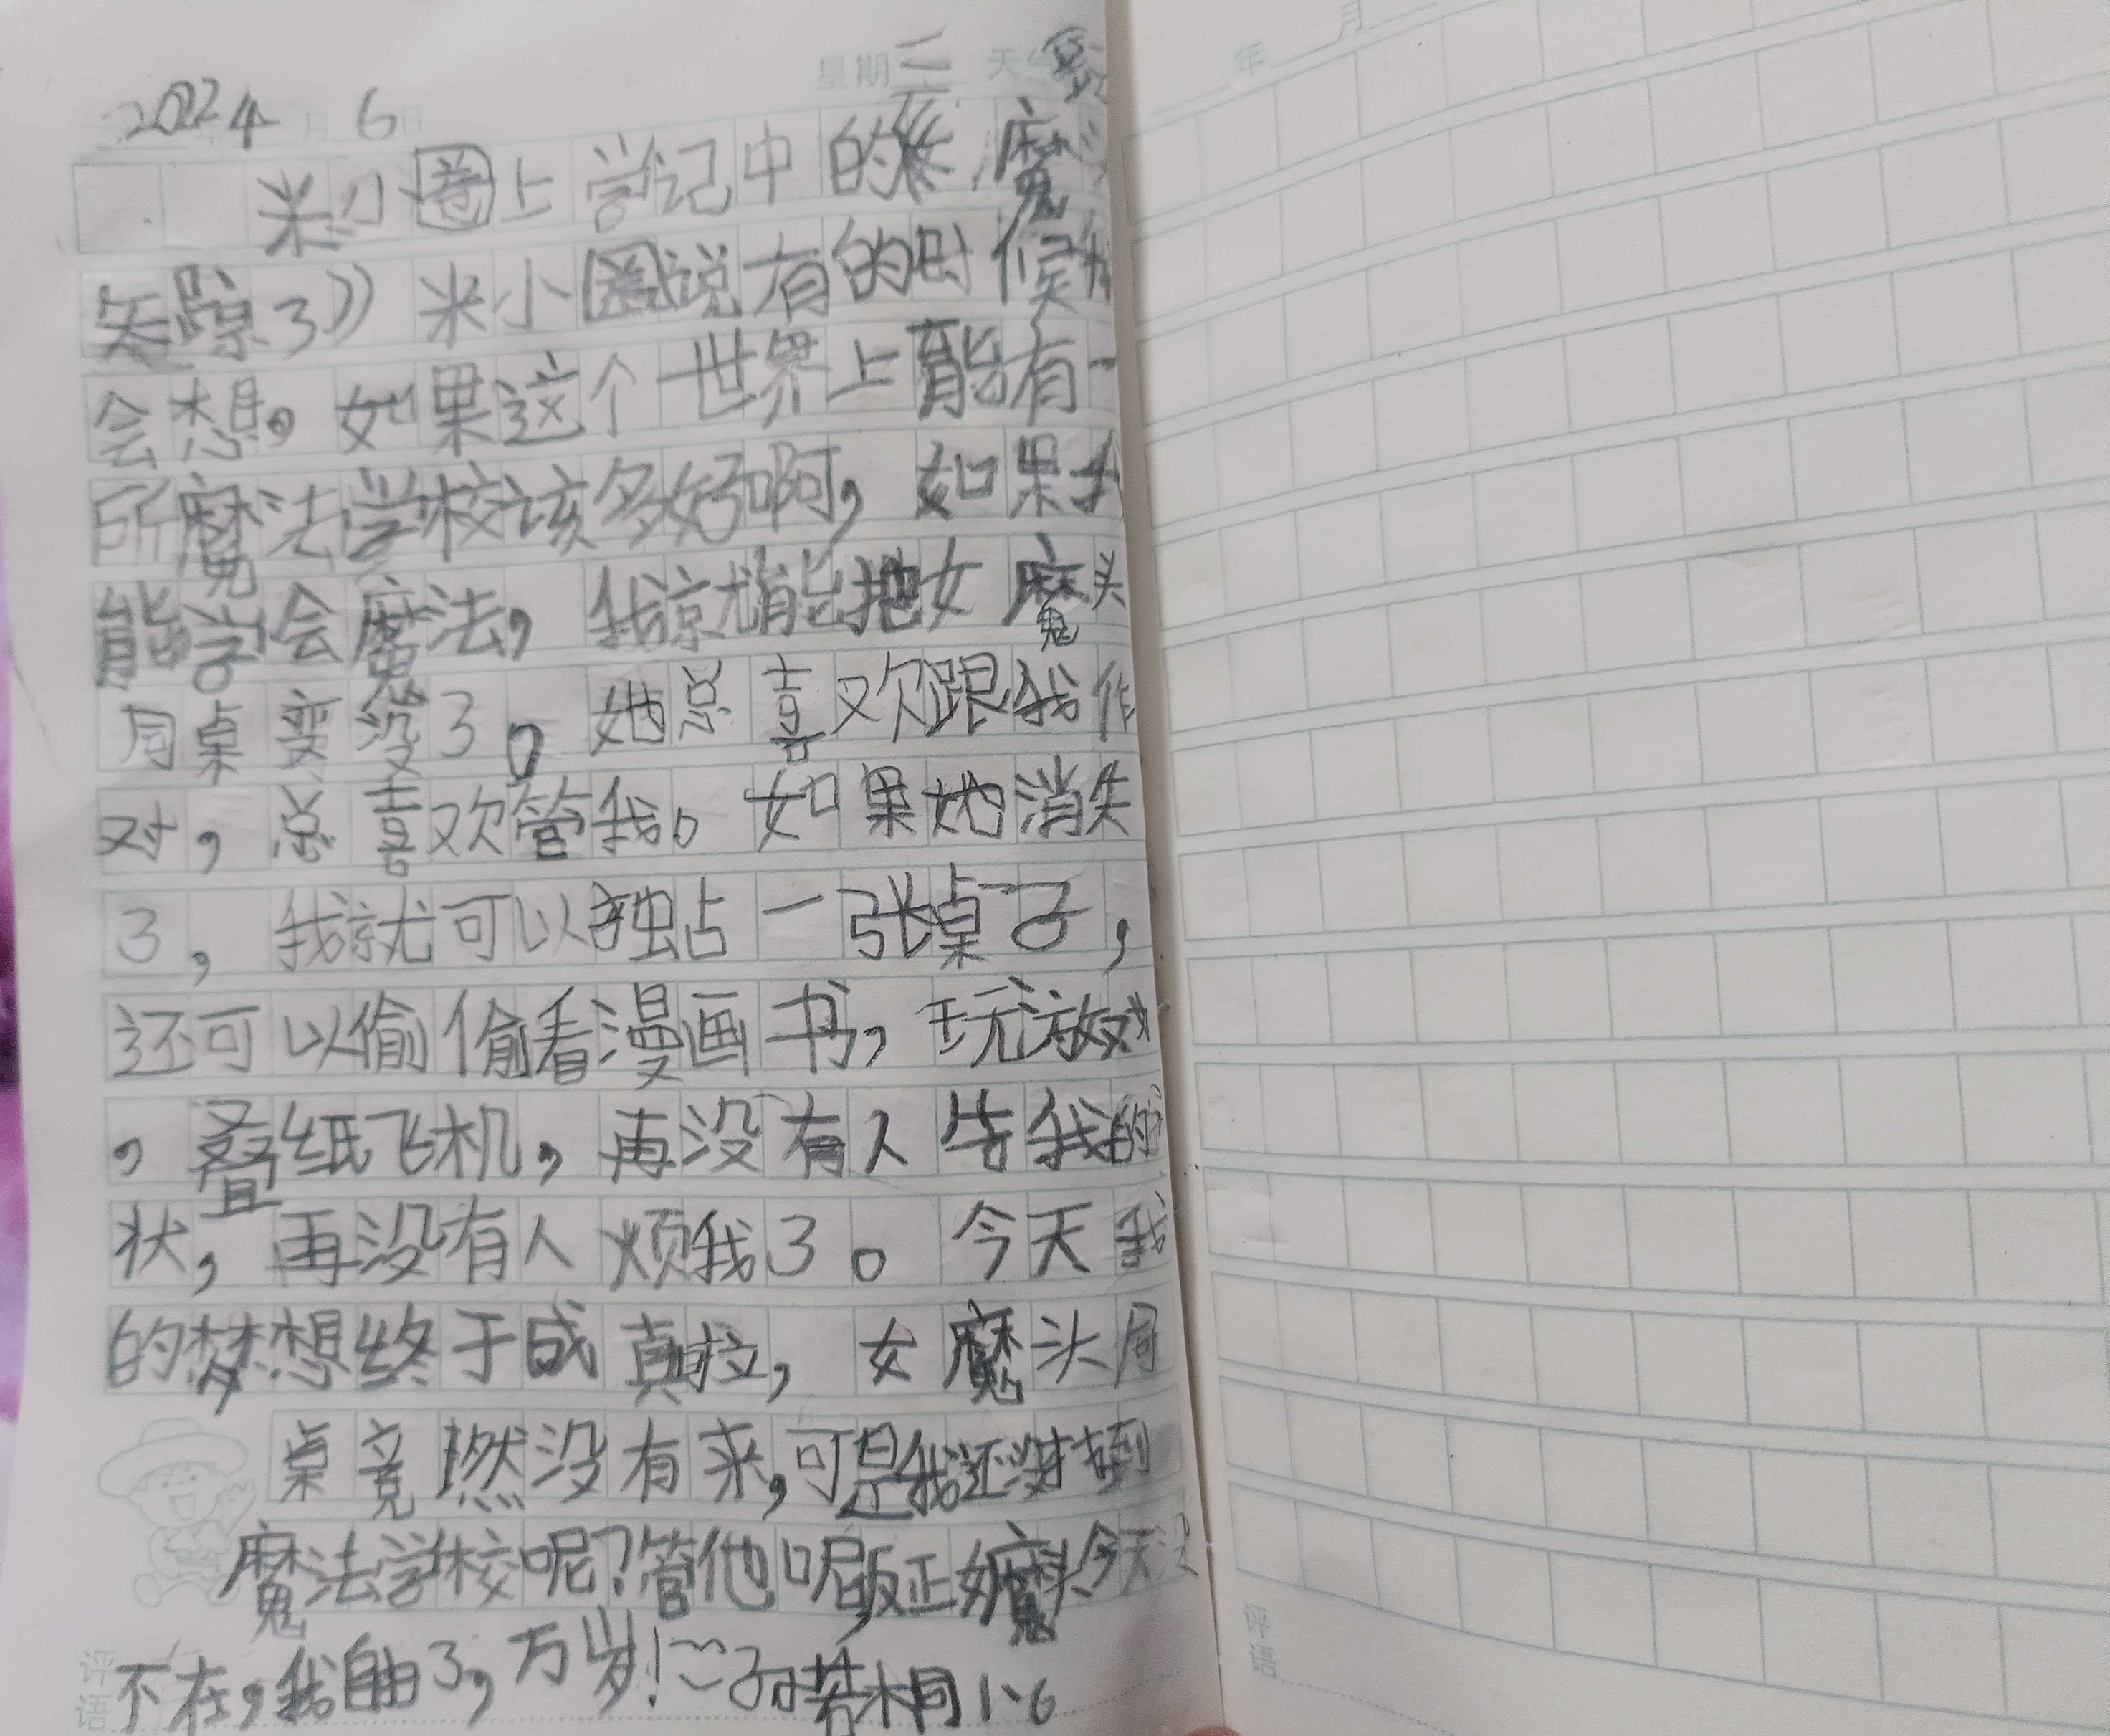 星期三 天
2022 4月6日
米小圈上学记中的女魔头
失踪了》米小圈说有的时候我
会想,如果这个世界上能有一
所魔法学校该多好啊,如果我
能学会魔法,我就能把女魔头
同桌变没了。她总喜欢跟我作
对,总喜欢管我。如果她消失
了,我就可以独占一张桌子,
还可以偷偷看漫画书,玩游戏
,叠纸飞机,再没有人告我的
状,再没有人烦我了。今天我
的梦想终于成真啦,女魔头同
桌竟燃没有来,可是我还没找到
魔法学校呢?管他呢,反正女魔头今天没
不在,我自由了,万岁!
评语
年 月
评语